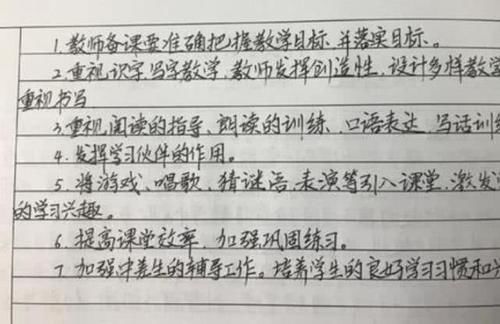 1.教师备课要准确把握教学目标,并落实目标。
2.重视识字、写字教学,教师发挥创造性,设计多样教学
重视书写
3.重视阅读的指导、朗读的训练、口语表达、写话训练
4.发挥学习伙伴的作用。
5.将游戏、唱歌、猜谜语、表演等引入课堂,激发
的学习兴趣。
6.提高课堂效率,加强巩固练习。
7.加强中差生的辅导工作。培养学生的良好学习习惯和